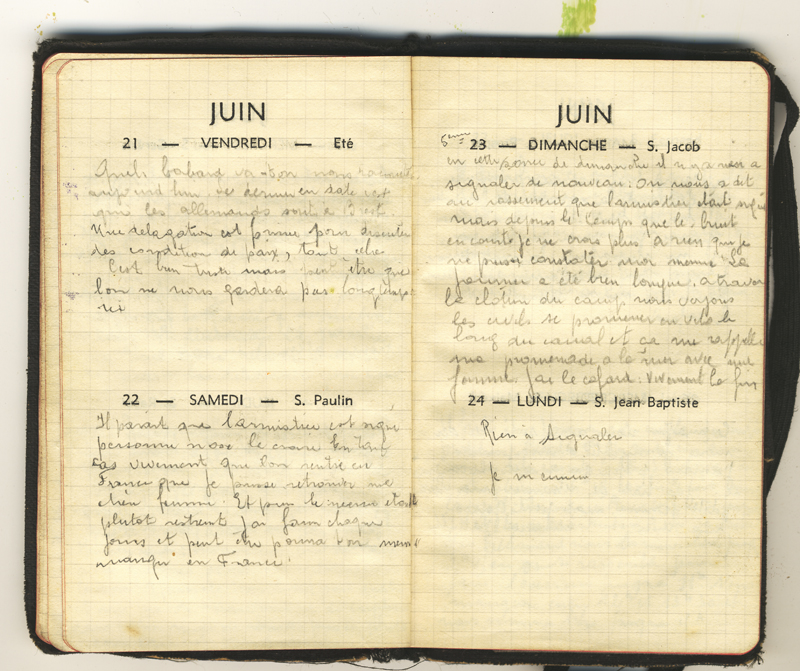 JUIN
21 — VENDREDI — Eté
Quels va-t-on nous raconter
aujourd hui les dernier en date est
que les allemands sont a Brest
Une delegation est pour discuter
des condition de paix,
C'est bien mais peut être que
lon ne nous gardera pas longtemps
ici
22 — SAMEDI — S. Paulin
Il parait que larmistice est signé
personne nose le croire En tout
cas vivement que lon rentre en
France que je puisse retrouver ma
chère femme. Et puis le est
plutot restreint jai faim chaque
jours et peut être pourra ton
manger en France.
JUIN
5eme 23 — DIMANCHE — S. Jacob
en cette de dimanche il ny a rien a
signaler de nouveau. On nous a dit
au rassement que larmistice etait signé
mais depuis le temps que le bruit
en court je ne crois plus a rien que je
ne puisse constater moi meme La
journee a été bien longue. a travers
la cloture du camp nous voyons
les civils se promener en velo le
long du canal et ça me rappelle
ma promenade a la mer avec ma
femme. Jai le cafard. Vivement la fin
24 — LUNDI — S. Jean Baptiste
Rien à Signaler
je m